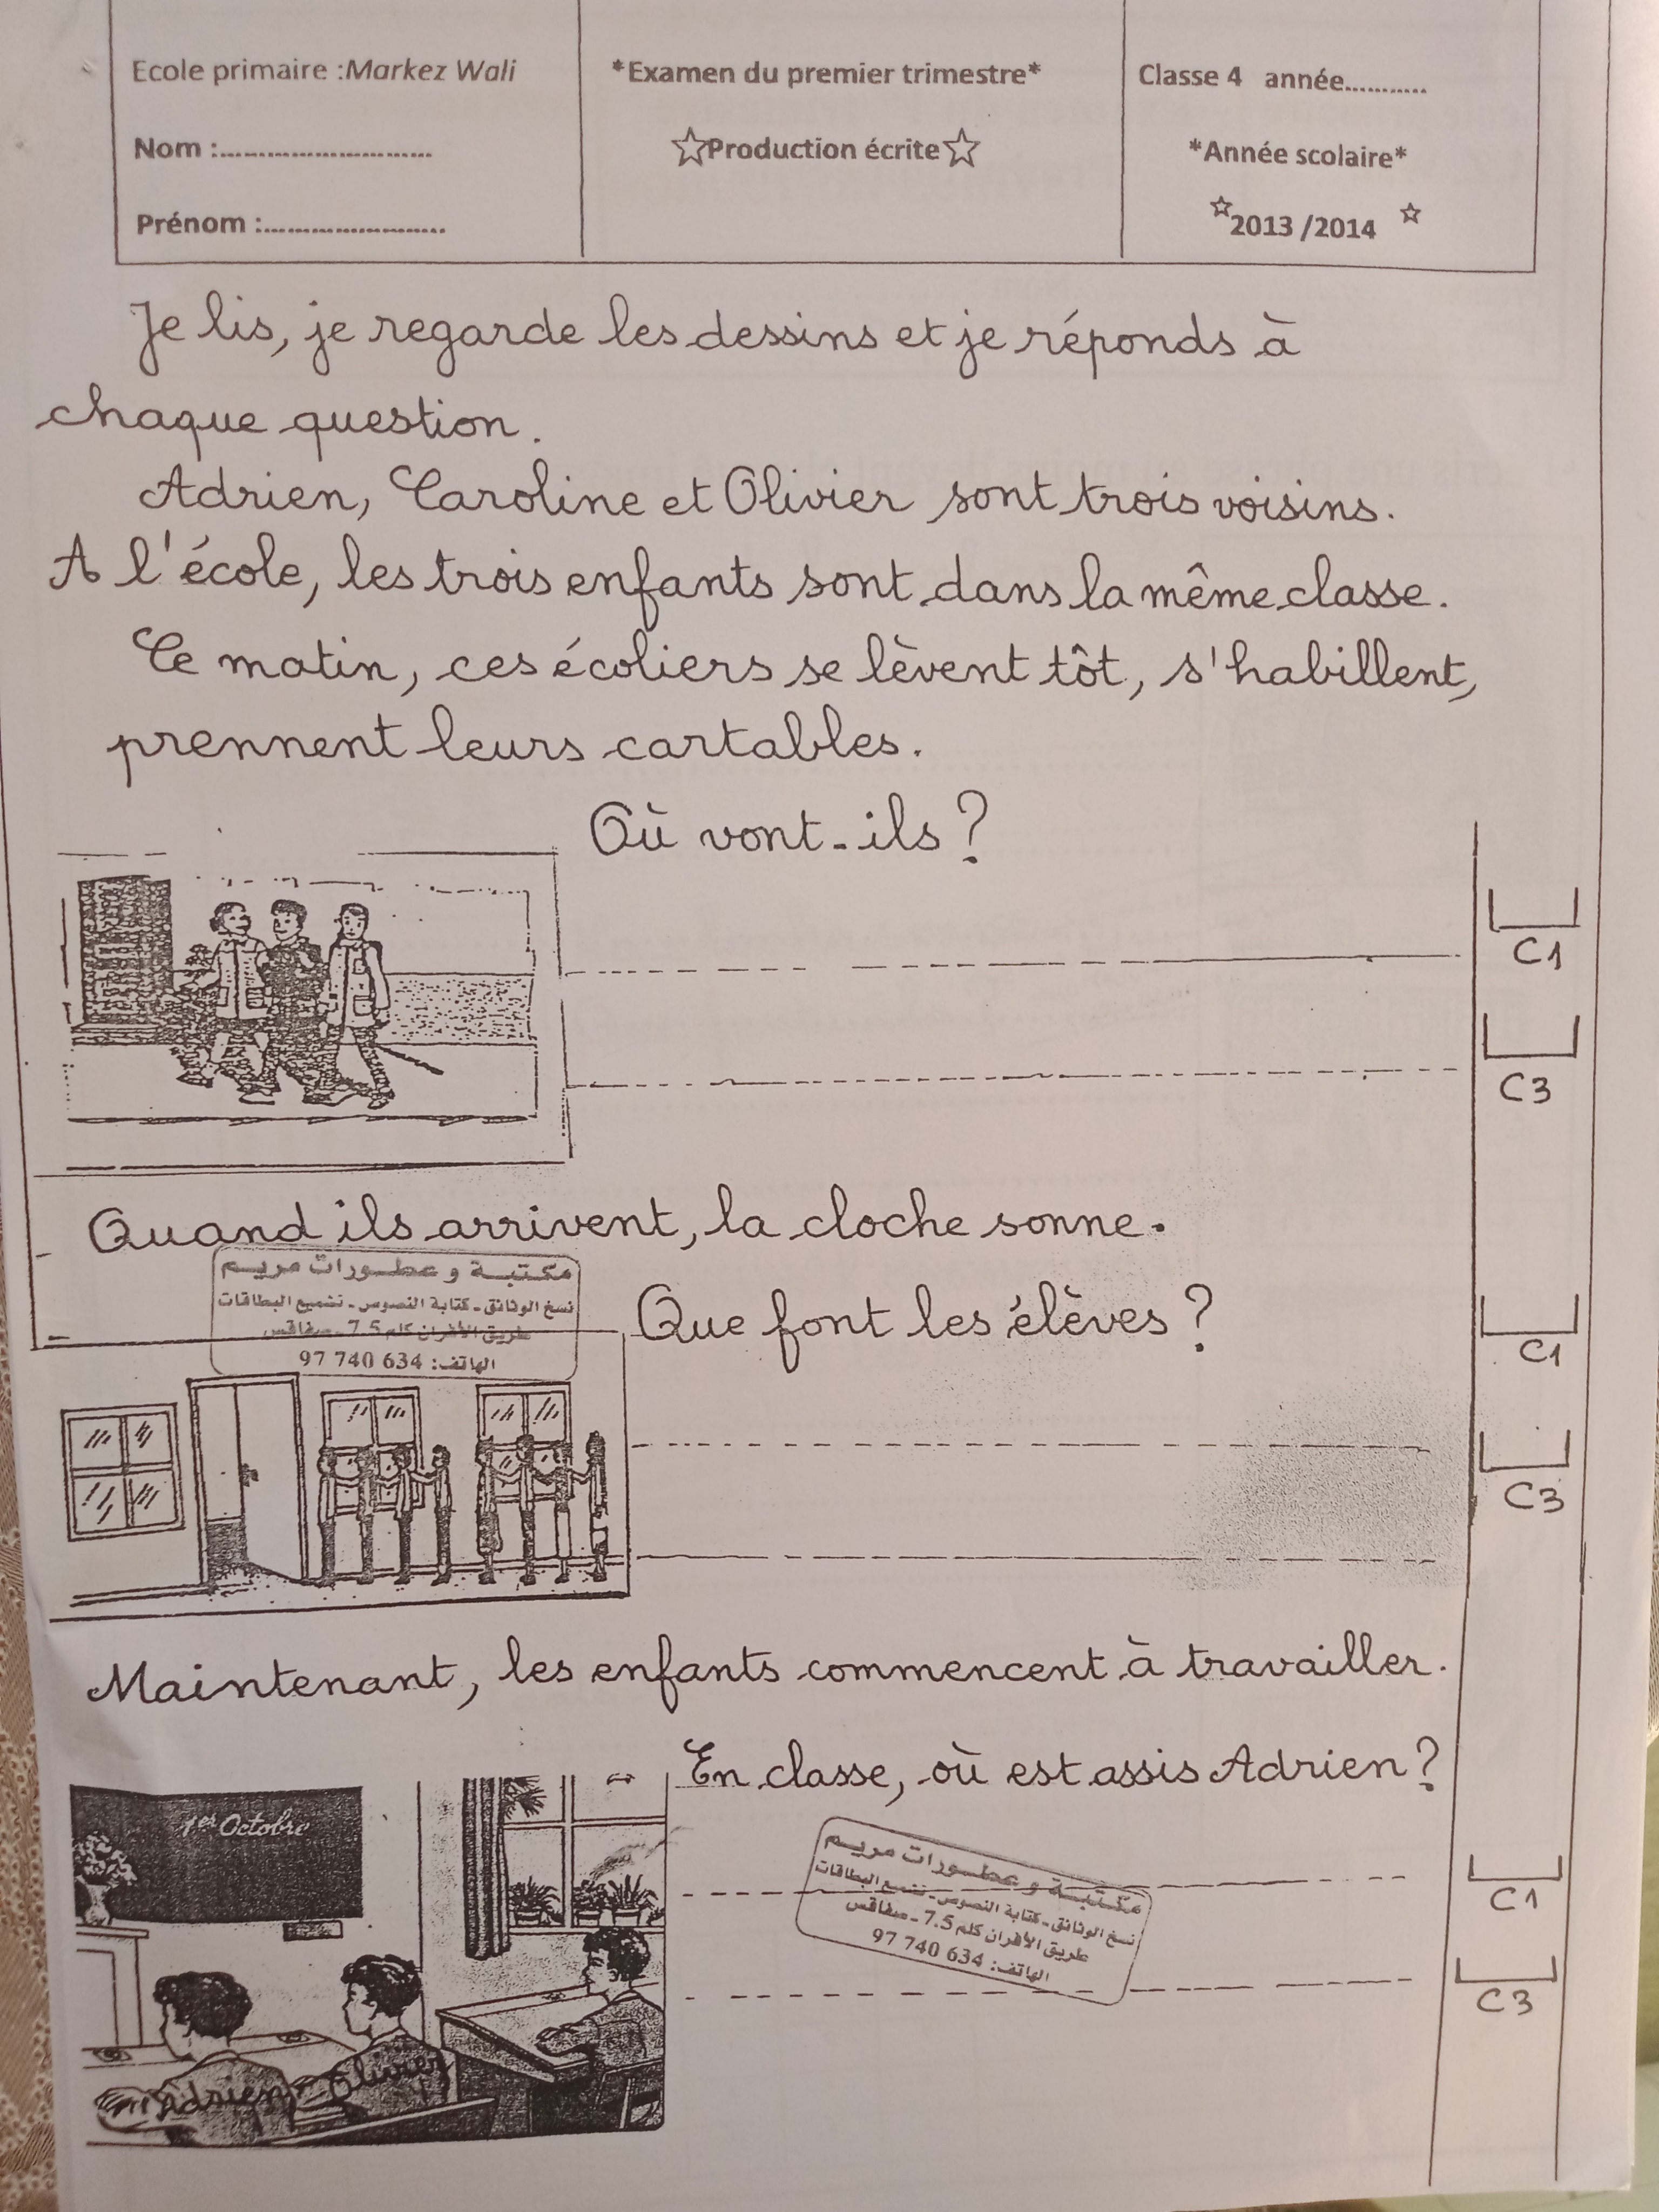 Ecole primaire :Markez Wali
Nom :...........................
Prénom :.......................
*Examen du premier trimestre*
☆Production écrite☆
Classe 4 année...........
*Année scolaire*
☆2013 /2014 ☆
Je lis, je regarde les dessins et je réponds à
chaque question.
Adrien, Caroline et Olivier sont trois voisins.
A l'école, les trois enfants sont dans la même classe.
Ce matin, ces écoliers se lèvent tôt, s'habillent,
prennent leurs cartables.
Où vont-ils ?
C1
C3
Quand ils arrivent, la cloche sonne.
مكتبة و عطورات مريم
نسخ الوثائق - كتابة النصوص - تشميع البطاقات
طريق الأفران كلم 7.5 - صفاقس
الهاتف: 97 740 634
Que font les élèves ?
C1
C3
Maintenant, les enfants commencent à travailler.
En classe, où est assis Adrien ?
1er Octobre
Adrien
Olivier
مكتبة و عطورات مريم
نسخ الوثائق - كتابة النصوص - تشميع البطاقات
طريق الأفران كلم 7.5 - صفاقس
الهاتف: 97 740 634
C1
C3